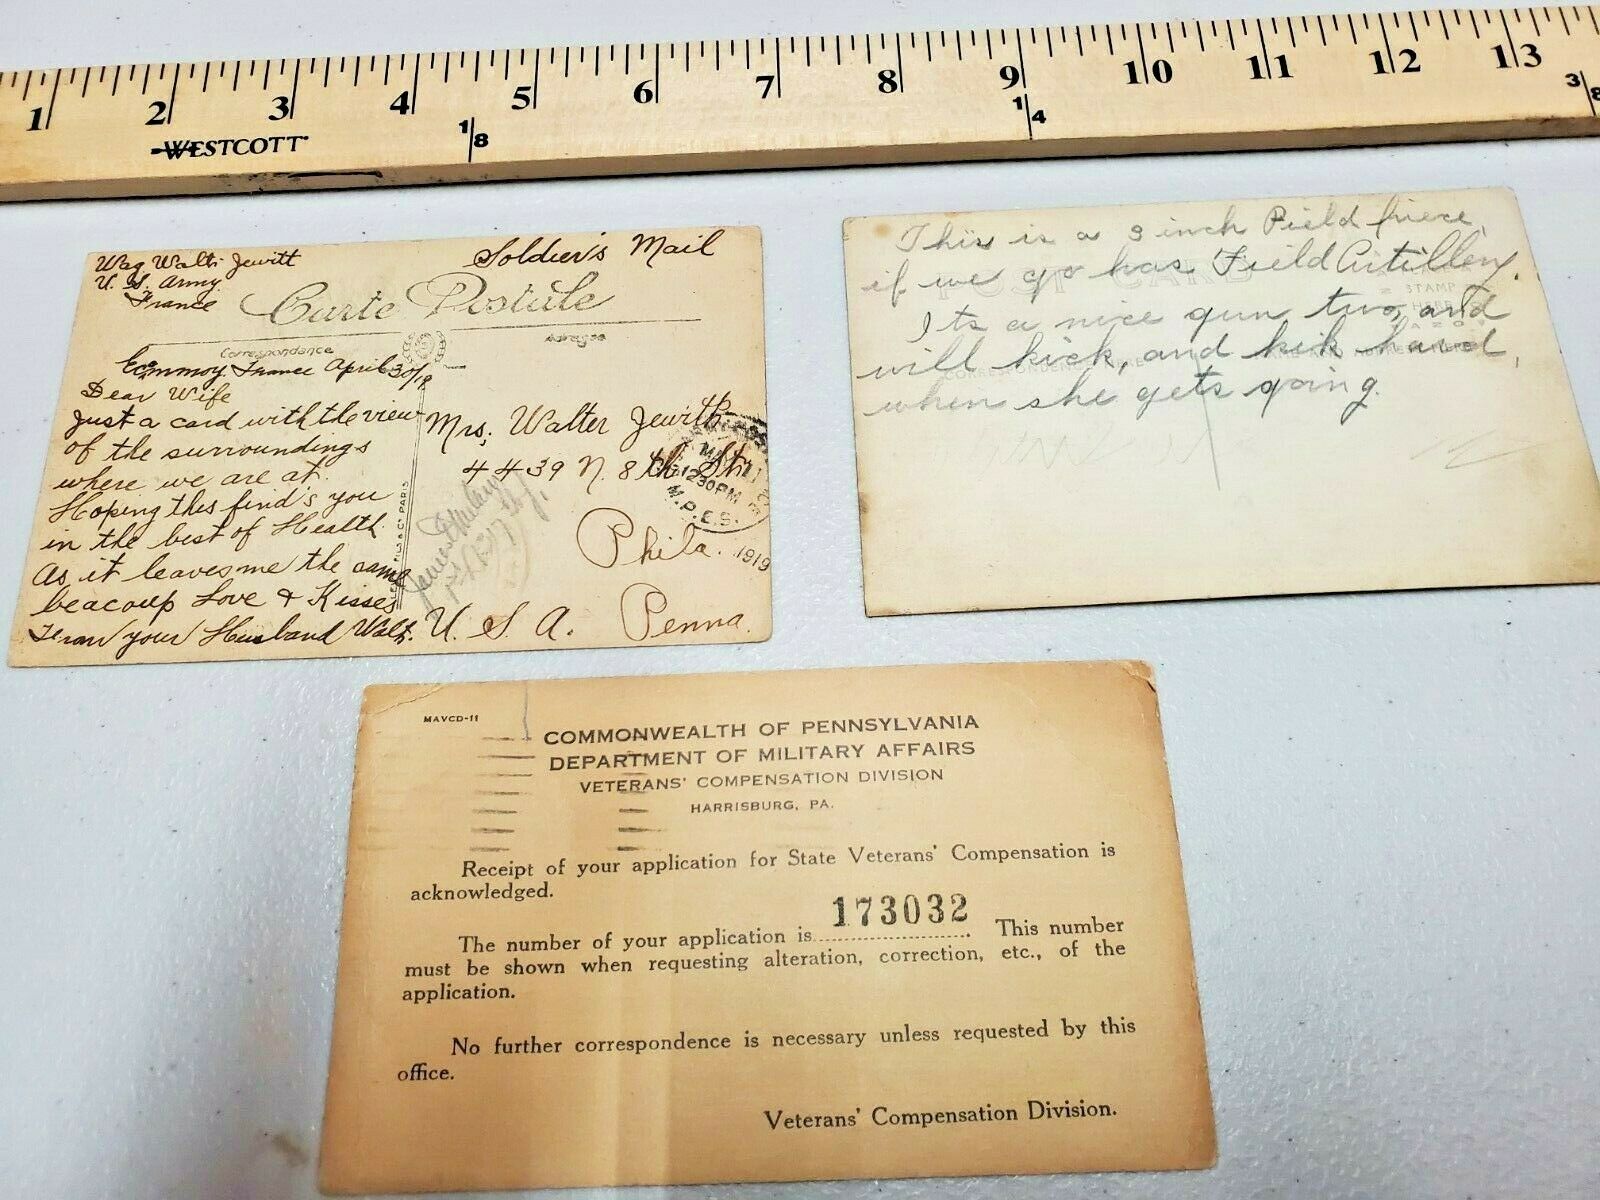 1 2 3 4 5 6 7 8 9 10 11 12 13
1/8 1/4 3/8
WESTCOTT
Wag Walt. Jewitt
U. S. Army
France
Soldier's Mail
Carte Postale
Correspondance
Ecommoy, France April 30/19
Dear Wife
Just a card with the view
of the surroundings
where we are at.
Hoping this find's you
in the best of Health
As it leaves me the same
beacoup Love & Kisses
From your Husband Walt.
Mrs, Walter Jewitt
4439 N. 8th St.
Phila.
Penna.
U. S. A.
12 30 PM
M.P.E.S.
1919
FILS & Cº PARIS
This is a 3 inch Field piece,
if we go has Field Artillery.
Its a nice gun two, and
will kick, and kik hard,
when she gets going.
POST CARD
STAMP
HERE
AZO
CORRESPONDENCE
MAVCD-11
COMMONWEALTH OF PENNSYLVANIA
DEPARTMENT OF MILITARY AFFAIRS
VETERANS' COMPENSATION DIVISION
HARRISBURG, PA.
Receipt of your application for State Veterans' Compensation is
acknowledged.
The number of your application is 173032. This number
must be shown when requesting alteration, correction, etc., of the
application.
No further correspondence is necessary unless requested by this
office.
Veterans' Compensation Division.